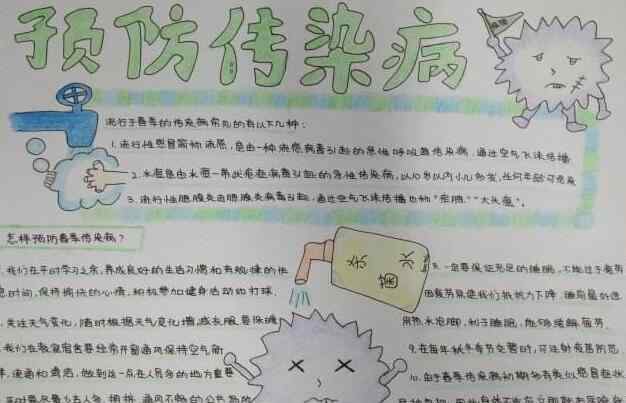 预防传染病
流行于春季的传染病常见的有以下几种:
1.流行性感冒简称流感,是由一种流感病毒引起的急性呼吸道传染病,通过空气飞沫传播
2.水痘是由水痘一带状疱疹病毒引起的急性传染病,以10岁以内小儿多发,任何年龄可感染
3.流行性腮腺炎由腮腺炎病毒引起,通过空气飞沫传播也称"痄腮""大头瘟"。
怎样预防春季传染病?
我们在平时学习之余,养成良好的生活习惯和有规律的作
息时间,保持愉快的心情,积极参加健身活动如打球、
关注天气变化,随时根据天气变化增,减衣服,要保暖
我们在教室宿舍要经常开窗通风保持空气新
流通和清洁,做到这一点在人员多的地方重要
平时要尽量少去人多、拥挤、通风不畅的公共场所
水
8.一定要保证充足的睡眠,不能过于疲劳
因疲劳易使我们抵抗力下降,睡前最好选
用热水泡脚,利于睡眠,能够缓解疲劳。
9.在每年秋冬季节交替时,可注射疫苗防范
10.由于春季传染病初期多有类似感冒症状